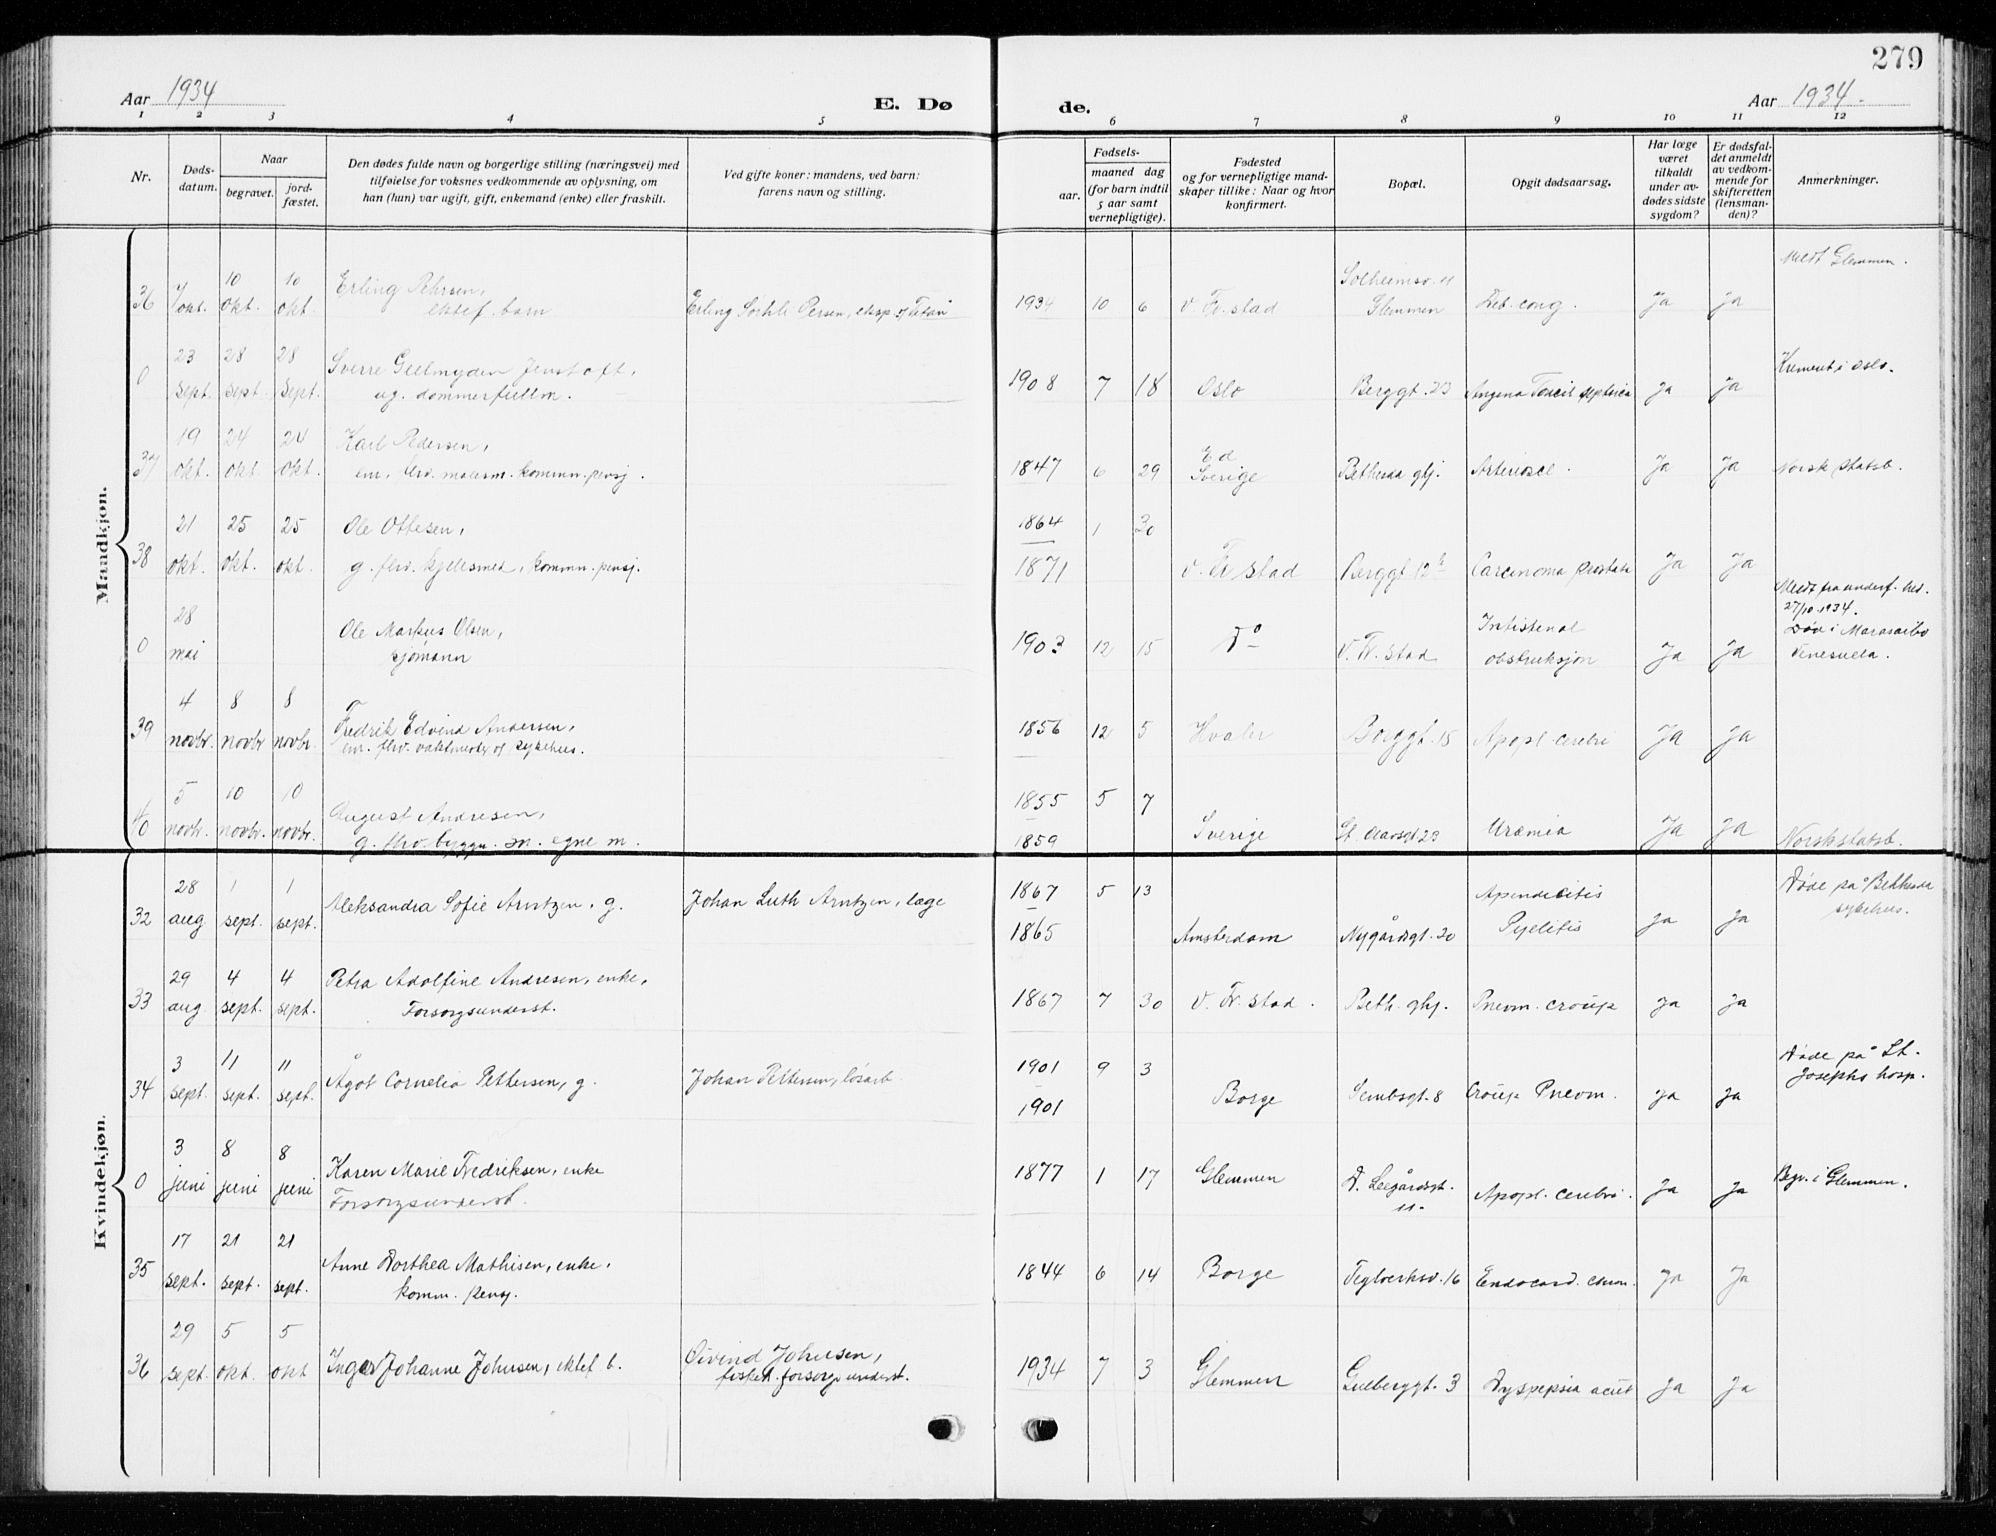 279
Aar 1934
E. Dø
de.
Aar 1934
1 2 3 4 5 6 7 8 9 10 11 12
Nr.
Døds-
datum.
Naar
begravet.
jord-
fæstet.
Den dødes fulde navn og borgerlige stilling (næringsvei) med
tilføielse for voksnes vedkommende av oplysning, om
han (hun) var ugift, gift, enkemand (enke) eller fraskilt.
Ved gifte koner: mandens, ved barn:
farens navn og stilling.
Fødsels-
aar.
maaned dag
(for barn indtil
5 aar samt
vernepligtige).
Fødested
og for vernepligtige mand-
skaper tillike: Naar og hvor
konfirmert.
Bopæl.
Opgit dødsaarsag.
Har læge
været
tilkaldt
under av-
dødes sidste
sygdom?
Er dødsfal-
det anmeldt
av vedkom-
mende for
skifteretten
(lensman-
den)?
Anmerkninger.
Mandkjøn.
10 10 Solheimsv. 11 Meldt Glemmen.
36 7 okt. okt. okt. Erling Pehrsen, 1934 10 6 v. Fr. stad Glemmen Deb. cong. Ja Ja
ektef. barn Erling
23 28 28 Sverre Gjelmyden Jenstoft, Kremert i Oslo.
0 sept. sept. sept. ug. dommerfullm. 1908 7 18 Oslo Berggt. 23 Angina septica Ja Ja
19 24 24 Karl Pedersen, Ed
37 okt. okt. okt. em. malerm. komm. pensj. 1847 6 29 Sverige Bethesda ghj. Arterioscl. Ja Ja Norsk statsb.
21 25 25 Ole Ottesen, 1864 1 30
38 okt. okt. okt. g. fhv. kjelesmed, komm. pensj. 1871 v. Fr stad Berggt 12 b Carcinoma prostata Ja Ja
28 Ole Markus Olsen, Intistenal Meldt fra underf. hed.
27/10 1934.
0 mai sjømann 1903 12 15 Do V. Fr. stad obstruksjon Ja Ja Død i Marasaibo
Venesuela.
4 8 8 Fredrik Edvind Andersen,
39 novbr. novbr novbr. em. fhv. vaktmester sykehus. 1856 12 5 Hvaler Borggt. 15 Apopl. cerebri Ja Ja
5 10 10 August Andresen, 1855 5 7
40 novbr. novbr. novbr. g. fhv. byggn. m. egne m. 1859 Sverige Uræmia Ja Ja Norsk statsb.
Kvindekjøn.
28 1 1 Aleksandra Sofie Arntzen, g. Johan Luth Arntzen, læge 1867 5 13 Apendicitis Døde på Bethesda
32 aug sept. sept. 1865 Amsterdam Nygårdsgt. 20 Pyelitis Ja Ja sykehus.
29 4 4 Petra Adolfine Andresen, enke,
33 aug. sept. sept. Forsorgsunderst. 1867 7 30 V. Fr. stad. Beth. ghj. Pnevm. croup Ja Ja
3 11 11 Ågot Cornelia Pettersen, g. Johan Pettersen, løsarb. 1901 9 3 Døde på St.
34 sept. sept. sept. 1901 Borge Sembsgt. 8 Croup Pnevm. Ja Ja Josephs hosp.
3 8 8 Karen Marie Fredriksen, enke
0 juni juni juni Forsorgsunderst. 1877 1 17 Glemmen D. Leegårdsgt. 11. Apopl. cerebri. Ja Ja Begr. i Glemmen.
17 21 21 Anne Dorthea Mathisen, enke,
35 sept. sept. sept. komm. pensj. 1844 6 14 Borge Teglverksv. 16 Endocard. chron. Ja Ja
29 5 5 Øivind Johnsen,
36 sept. okt. okt Inger Johanne Johnsen, ektef b. forsorgsunderst. 1934 7 3 Glemmen Gulberggt. 3 Dyspepsia acut Ja Ja